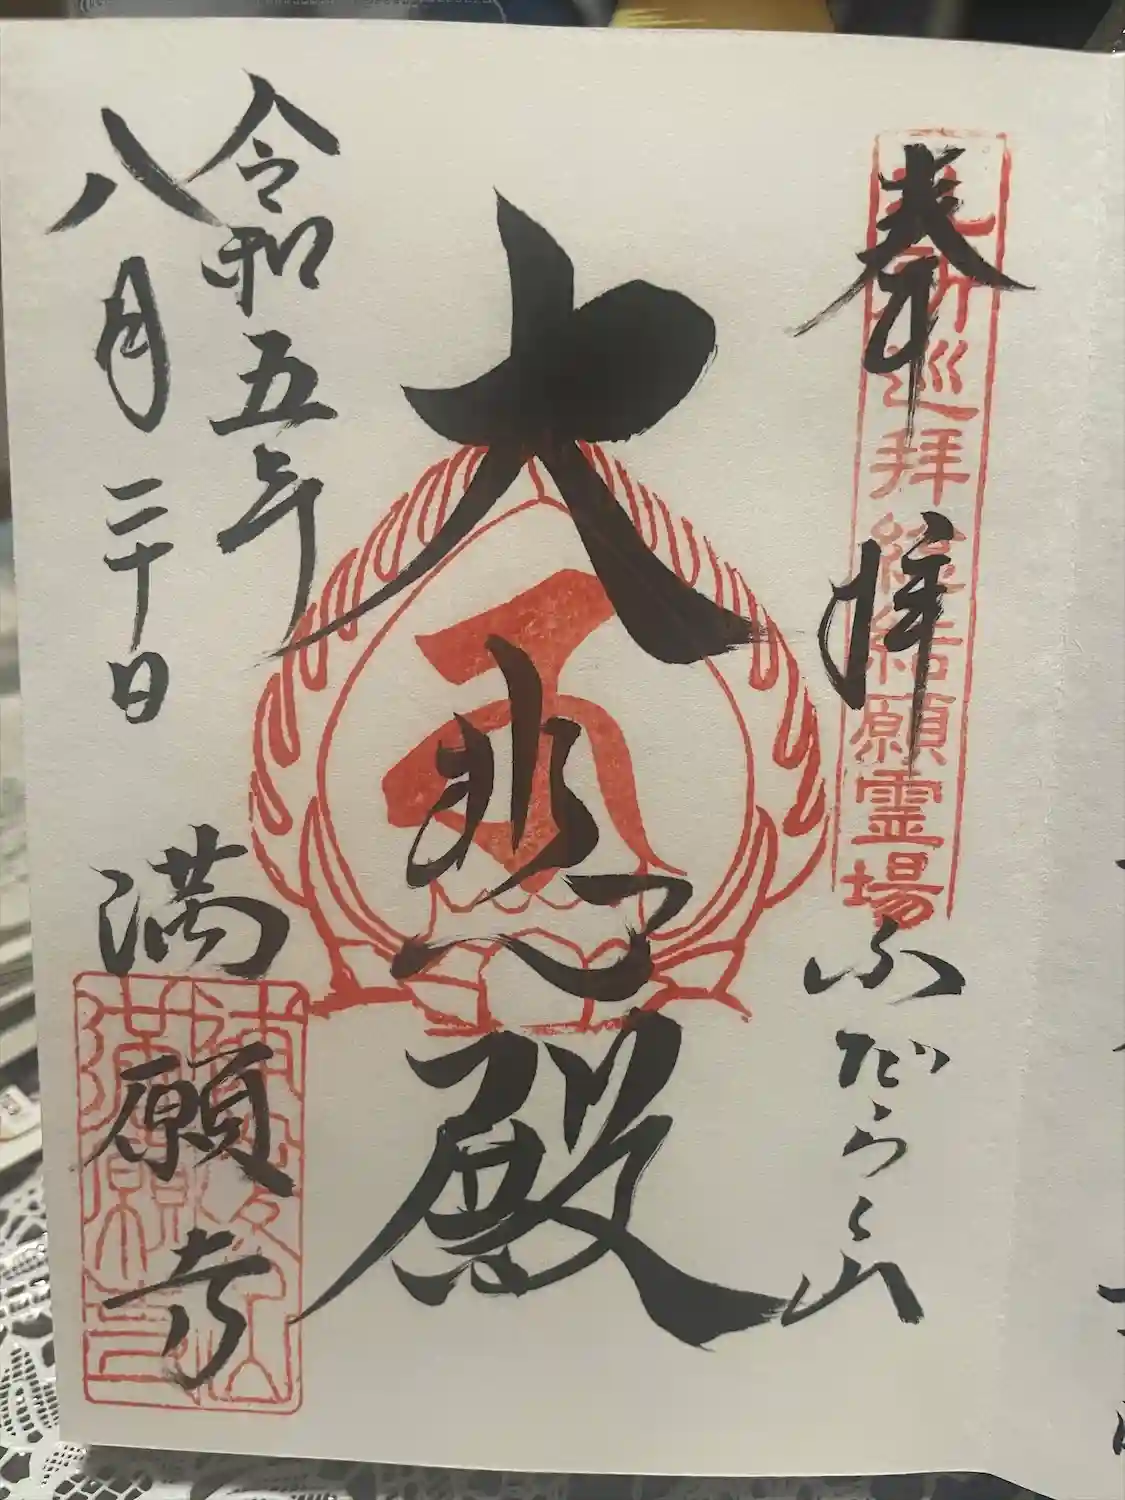 奉拝
ふだらく山
巡拝総結願霊場
大悲殿
令和五年
八月二十日
満願寺